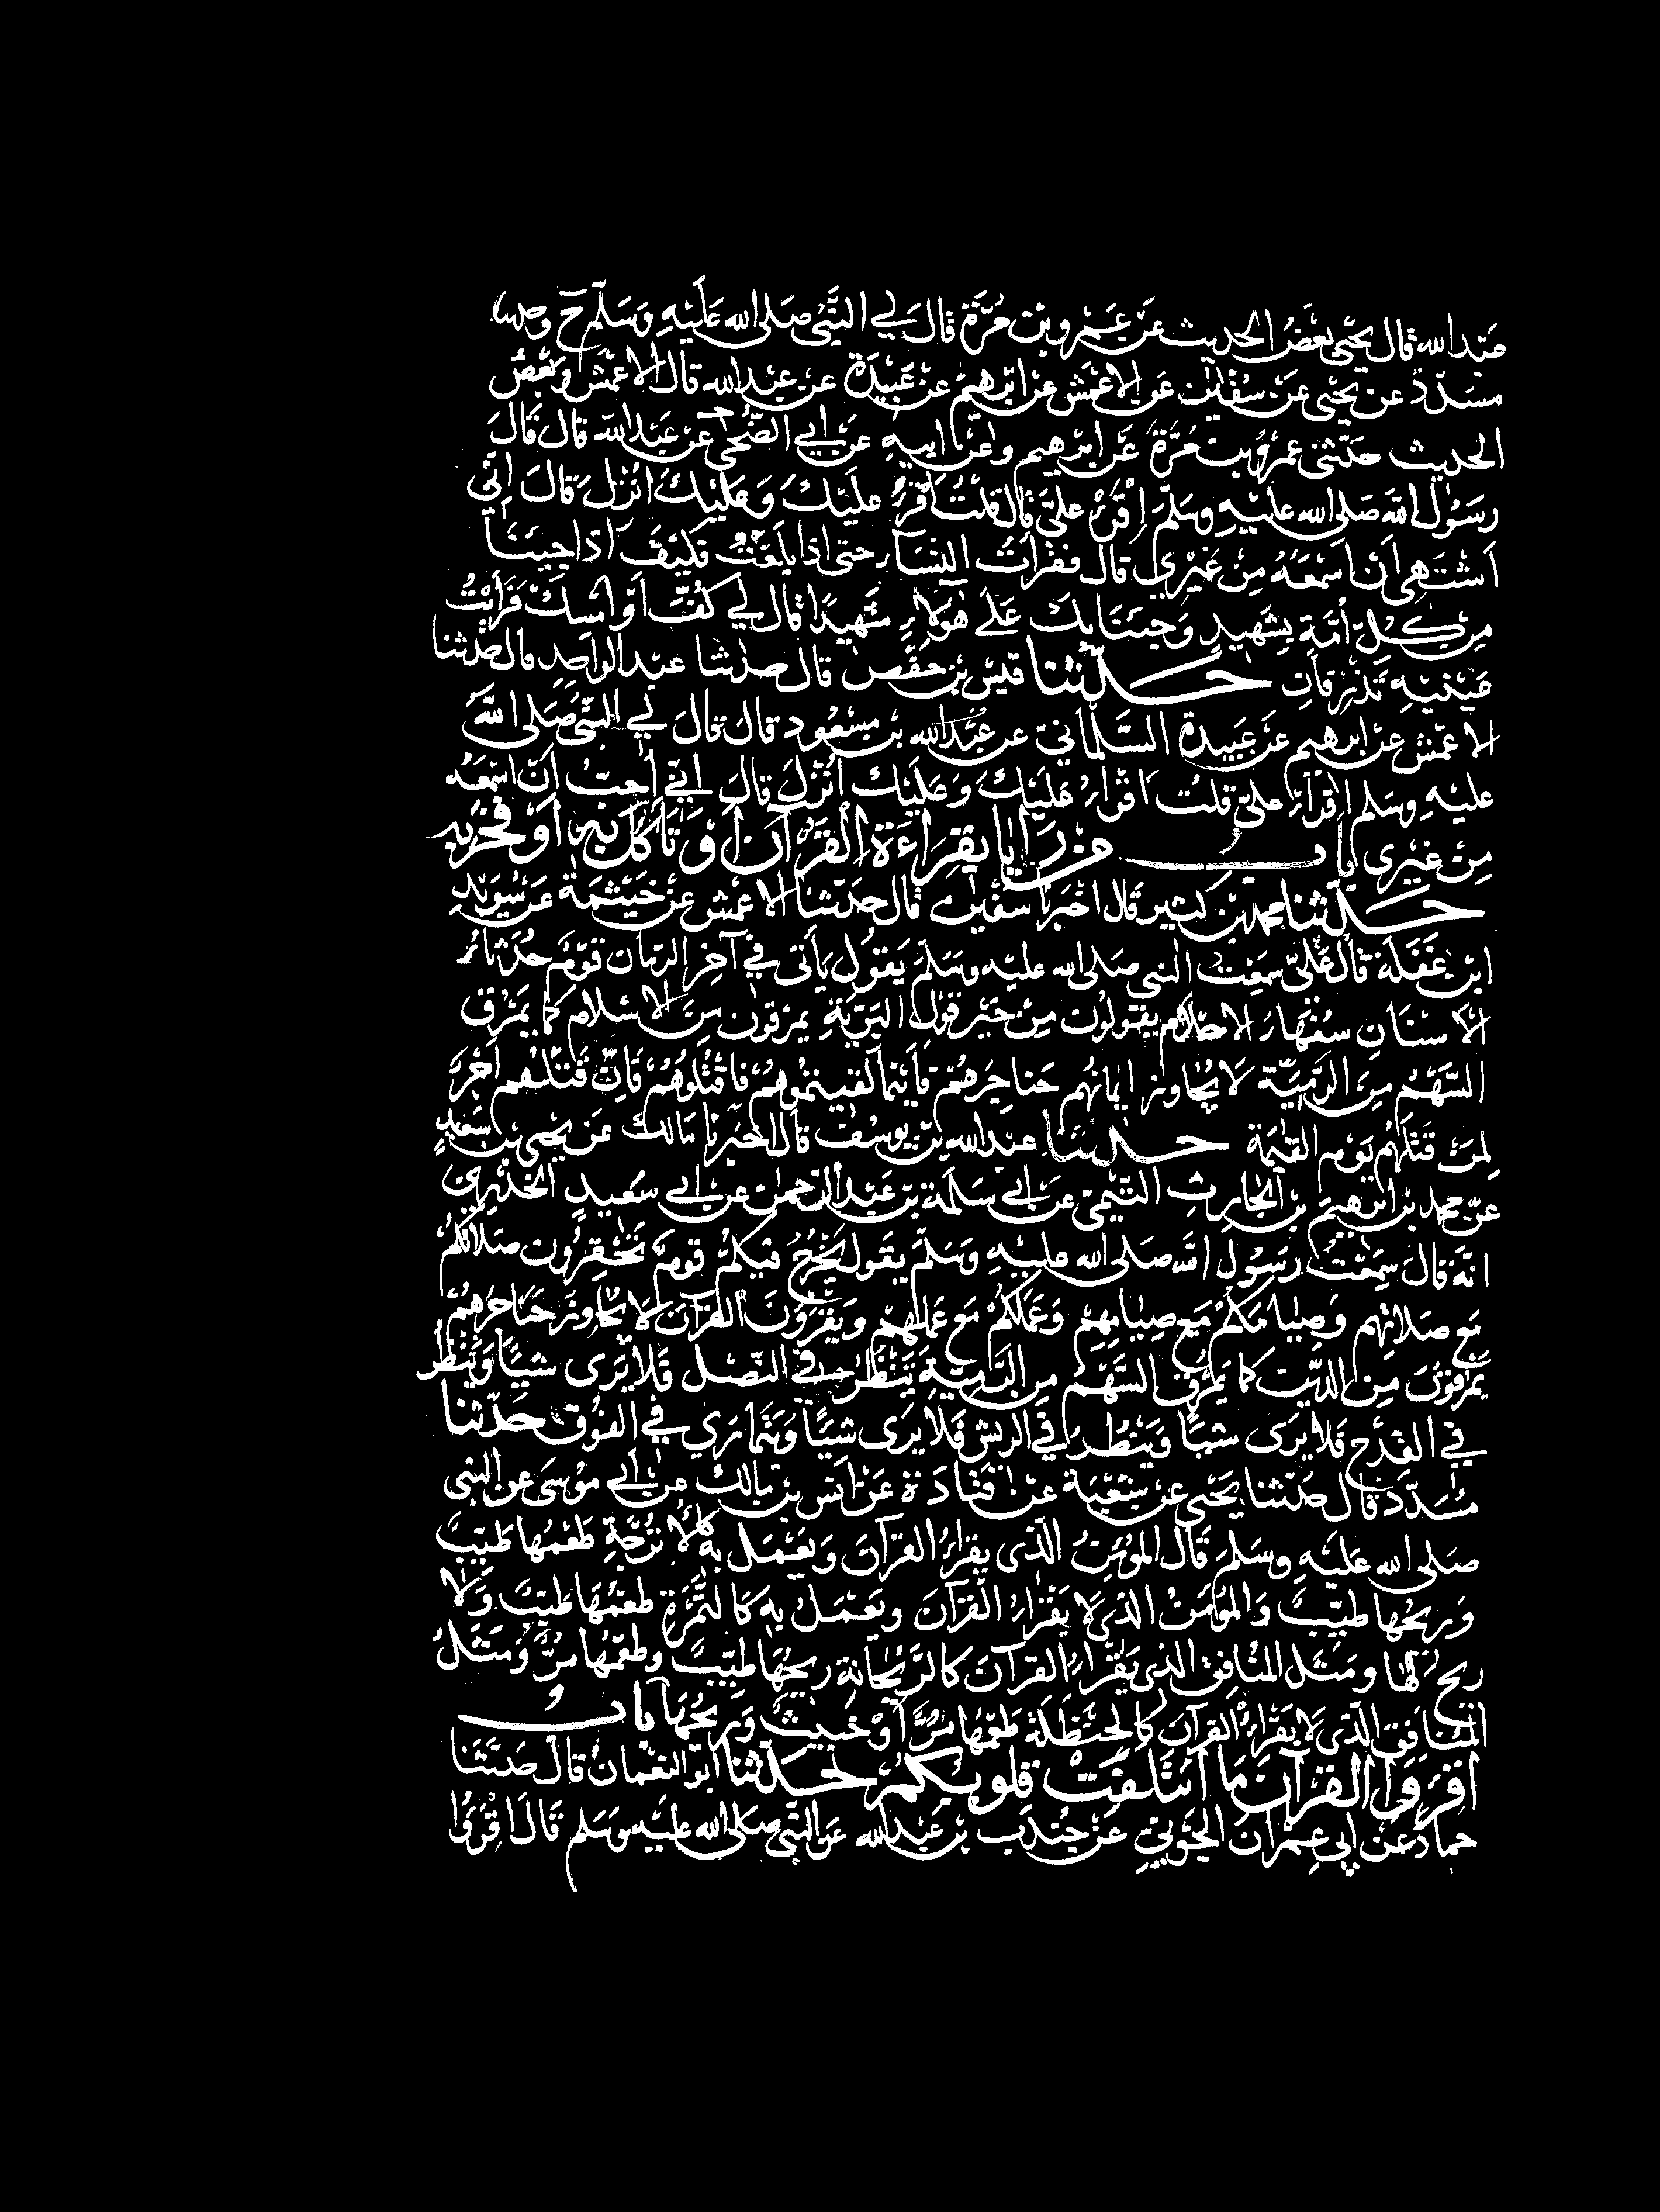 عبد الله قال يحيى بعض الحديث عن عمرو بن مرة قال لي النبي صلى الله عليه وسلم ح وحدثنا
مسدد عن يحيى عن سفين عن الاعمش عن ابرهيم عن عبيدة عن عبد الله قال الاعمش وبعض
الحديث حدثني عمرو بن مرة عن ابرهيم وعن ابيه عن ابي الضحى عن عبد الله قال قال
رسول الله صلى الله عليه وسلم اقرا علي قال قلت اقرا عليك وعليك انزل قال اني
اشتهي ان اسمعه من غيري قال فقرات النساء حتى اذا بلغت فكيف اذا جينا
من كل امة بشهيد وجئنا بك على هولاء شهيدا قال لي كف او امسك فرايت
عينيه تذرفان حدثنا قيس بن حفص قال حدثنا عبد الواحد قال حدثنا
الاعمش عن ابرهيم عن عبيدة السلماني عن عبد الله بن مسعود قال قال لي النبي صلى الله
عليه وسلم اقرا علي قلت اقرا عليك وعليك انزل قال اني احب ان اسمعه
من غيري باب من رايا بقراءة القرآن او تاكل به او فخر به
حدثنا محمد بن كثير قال اخبرنا سفين قال حدثنا الاعمش عن خيثمة عن سويد
ابن غفلة قال علي سمعت النبي صلى الله عليه وسلم يقول ياتي في آخر الزمان قوم حدثاء
الاسنان سفهاء الاحلام يقولون من خير قول البرية يمرقون من الاسلام كما يمرق
السهم من الرمية لا يجاوز ايمانهم حناجرهم فاينما لقيتموهم فاقتلوهم فان قتلهم اجر
لمن قتلهم يوم القيمة حدثنا عبد الله بن يوسف قال اخبرنا مالك عن يحيى بن سعيد
عن محمد بن ابرهيم بن الحارث التيمي عن ابي سلمة بن عبد الرحمن عن ابي سعيد الخدري
انه قال سمعت رسول الله صلى الله عليه وسلم يقول يخرج فيكم قوم تحقرون صلاتكم
مع صلاتهم وصيامكم مع صيامهم وعملكم مع عملهم ويقرون القرآن لا يجاوز حناجرهم
يمرقون من الدين كما يمرق السهم من الرمية ينظر في النصل فلا يرى شيا وينظر
في القدح فلا يرى شيا وينظر في الريش فلا يرى شيا ويتمارى في الفوق حدثنا
مسدد قال حدثنا يحيى عن شعبة عن قتادة عن انس بن مالك عن ابي موسى عن النبي
صلى الله عليه وسلم قال المؤمن الذي يقرا القرآن ويعمل به كالاترجة طعمها طيب
وريحها طيب والمؤمن الذي لا يقرا القرآن ويعمل به كالتمرة طعمها طيب ولا
ريح لها ومثل المنافق الذي يقرا القرآن كالريحانة ريحها طيب وطعمها مر ومثل
المنافق الذي لا يقرا القرآن كالحنظلة طعمها مر او خبيث وريحها باب
اقرؤا القرآن ما ائتلفت قلوبكم حدثنا ابو النعمان قال حدثنا
حماد عن ابي عمران الجوني عن جندب بن عبد الله عن النبي صلى الله عليه وسلم قال اقرؤا